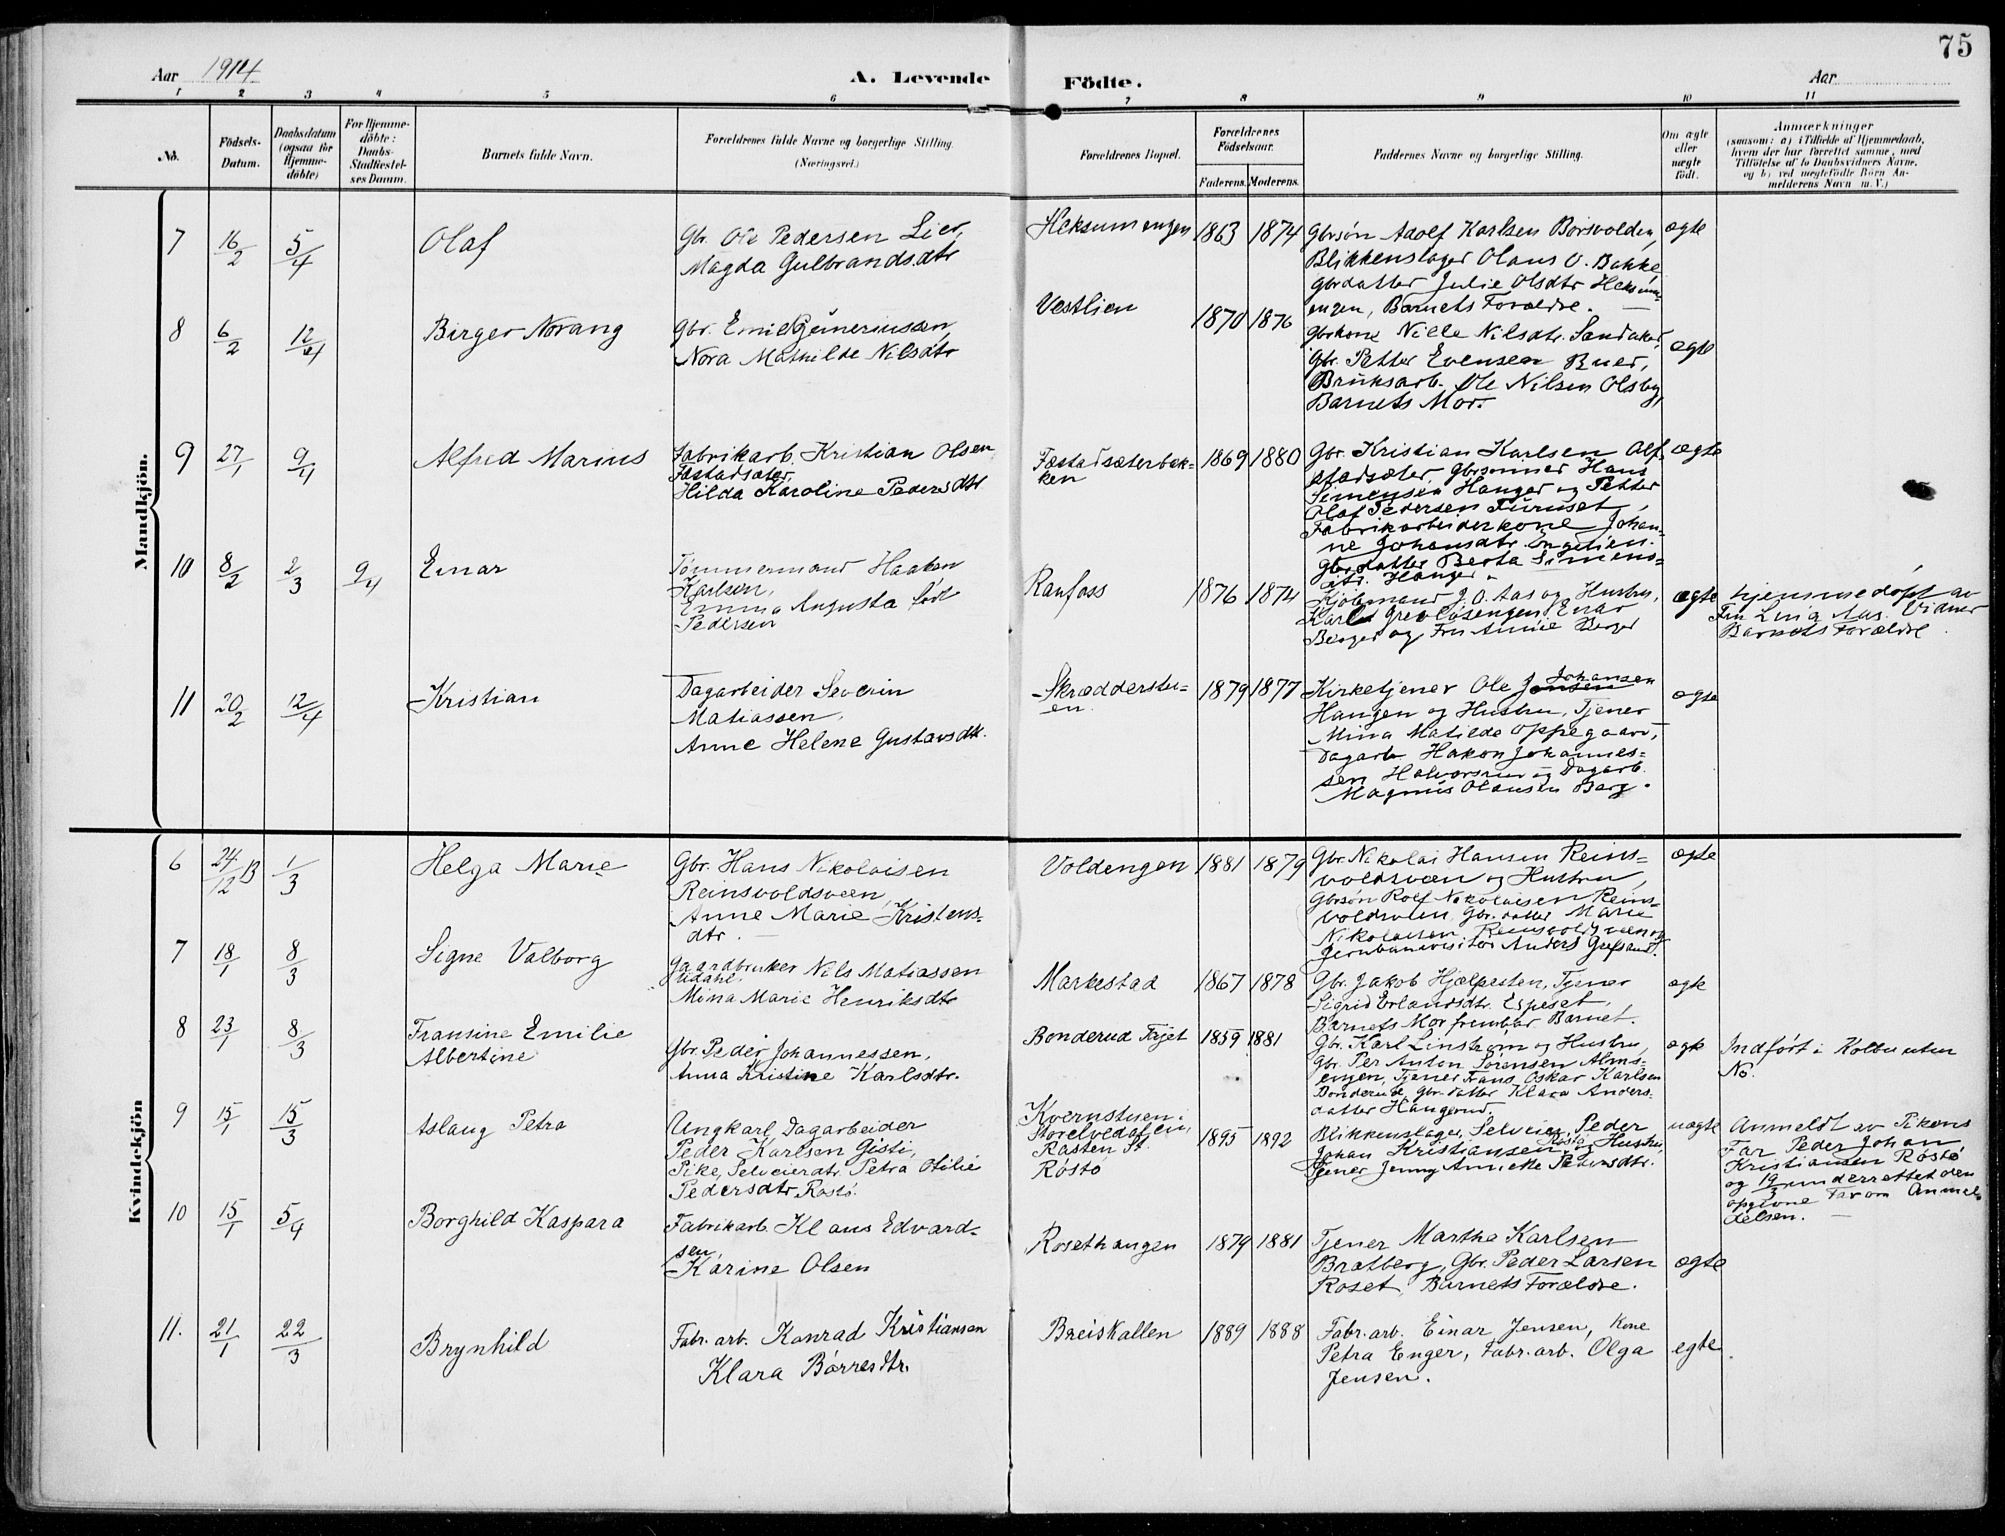 75
Aar 1914
A. Levende
Födte.
Aar
1 2 3 4 5 6 7 8 9 10 11
No.
Födsels-
Datum.
Daabsdatum
(ogsaa for
Hjemme-
döbte)
For Hjemme-
döbte:
Daabs-
Stadfæstel-
ses Datum.
Barnets fulde Navn.
Forældrenes fulde Navne og borgerlige Stilling.
(Næringsvei.)
Forældrenes Bopæl.
Forældrenes
Födselsaar.
Faderens. Moderens.
Faddernes Navne og borgerlige Stilling.
Om ægte
eller
uægte
födt.
Anmærkninger
(saasom: a) i Tilfælde af Hjemmedaab,
hvem der har forrettet samme, med
Tilföielse af to Daabsvidners Navne.
og b) ved uægtefödte Börn An-
melderens Navn m. V.)
Mandkjön.
7 16/2 5/4 Olaf
Gbr. Ole Pedersen Lier,
Magda Gulbrandsdtr
Heksumengen 1863 1874
Gbrsøn Adolf Karlsen Børsvolden,
Blikkenslager Olaus O. Bakke
Gbrdatter Julie Olsdtr Heksum-
engen, Barnets Forældre.
ægte
8 6/2 12/4 Birger Norang
Gbr. Emil Gunerinssen,
Nora Mathilde Nilsdtr
Vestlien 1870 1876
Gbrkone Nille Nilsdtr. Sandaker,
Gbr. Petter Evensen Buer,
Bruksarb. Ole Nilsen Olsby,
Barnets Mor.
ægte
9 27/1 9/4 Alfred Marius
Fabrikarb. Kristian Olsen
Fæstadsæter,
Hilda Karoline Pedersdtr
Fæstadsæterbak-
ken 1869 1880
Gbr. Kristian Karlsen Alf-
stadsæter, Gbrsønner Hans
Simensen Hanger og Petter
Olaf Pedersen Furuset,
Fabrikarbeiderkone Johan-
ne Johansdtr. Engelien.
Gbrdatter Berta Simens-
dtr. Hanger.
ægte
10 8/2 2/3 9/4 Einar
Tømmermand Haakon
Karlsen,
Emma Augusta født
Pedersen
Raufoss 1876 1874
Kjøbmand J. O. Aas og Hustru,
Karl Grevløsengen, Einar
Berger og Fru Annie Berger
ægte
Hjemmedøpt av
Fru Lina Aas. Vidner
Barnets Forældre
11 20/2 12/4 Kristian
Dagarbeider Severin
Matiassen,
Anne Helene Gustavsdtr.
Skræddersu-
en. 1879 1877
Kirketjener Ole Johansen
Haugen og Hustru, Tjener
Mina Matilde Oppegaard,
Dagarb Hakon Johannes-
sen Halvorsrud og Dagarb.
Magnus Olausen Berg.
ægte
Kvindekjön
6 24/12 13 1/3 Helga Marie
Gbr. Hans Nikolaisen
Reinsvoldsveen,
Anne Marie Kristens-
dtr.
Voldengen 1881 1879
Gbr. Nikolai Hansen Reins-
voldsveen og Hustru,
Gbrsøn Rolf Nikolaisen Reins-
voldsveen, Gbr. datter Marie
Nikolaisen Reinsvoldsveen og
Jernbanevisitør Anders Grefsrud.
ægte
7 18/1 8/3 Signe Valborg
Gaardbruker Nils Matiassen
Mina Marie Henriksdtr
Markestad 1867 1878
Gbr. Jakob Hjelpesten, Tjener
Sigrid Erlandsdtr. Espeset,
Barnets Mor frembar Barnet.
ægte
8 23/1 8/3 Fransine Emilie
Albertine
Gbr. Peder Johannessen,
Anna Kristine Karlsdtr.
Bonderud Ejet 1859 1881
Gbr. Karl Linstrøm og Hustru,
Gbr. Per Anton Sørensen Alms-
engen, Tjener Frans Oskar Karlsen
Bonderud, Gbr. datter Klara Anders-
datter Haugerud.
ægte
Indført i Kolbu uten
No.
9 15/1 15/3 Aslaug Petra
Ungkarl Dagarbeider
Peder Karlsen Gisti,
Pike, Selveierdtr. Petra Otilie
Pedersdtr Røstø.
Kvernstuen.
Rasten St.
Røstø 1895 1892
Blikkenslager, Selveier, Peder
Johan Kristiansen Røstø og Hustru,
Tjener Jenny Annette Pedersdtr.
uægte
Anmeldt av Pikens
Far Peder Johan
Kristiansen Røstø
og 19/3 underrettet den
opgivne Far om Anmel-
delsen.
10 15/1 5/4 Borghild Kaspara
Fabrikarb. Klaus Edvard-
sen,
Karine Olsen
Rosethaugen 1879 1881
Tjener Martha Karlsen
Bratberg, Gbr. Peder Larsen
Roset, Barnets Forældre.
ægte
11. 21/1 22/3 Brynhild
Fabr. arb. Konrad Kristiansen
Klara Børresdtr.
Breiskallen 1889 1888
Fabr. arb. Einar Jensen, Kone
Petra Enger, Fabr. arb. Olga
Jensen.
egte.